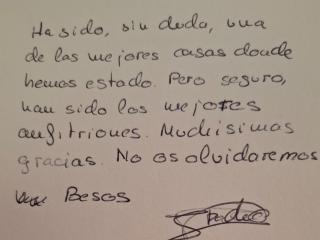 Ha sido, sin duda, una
de las mejores casas donde
hemos estado. Pero seguro,
han sido los mejores
anfitriones. Muchísimas
gracias. No os olvidaremos
Besos